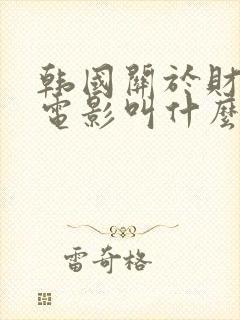 韩國關於財
電影叫什麼
雷奇格